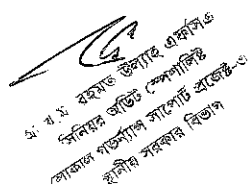 মোঃ রহমত উল্যাহ এফসিএ
সিনিয়র অডিট স্পেশালিষ্ট
লোকাল গভর্ন্যান্স সাপোর্ট প্রজেক্ট-৩
স্থানীয় সরকার বিভাগ